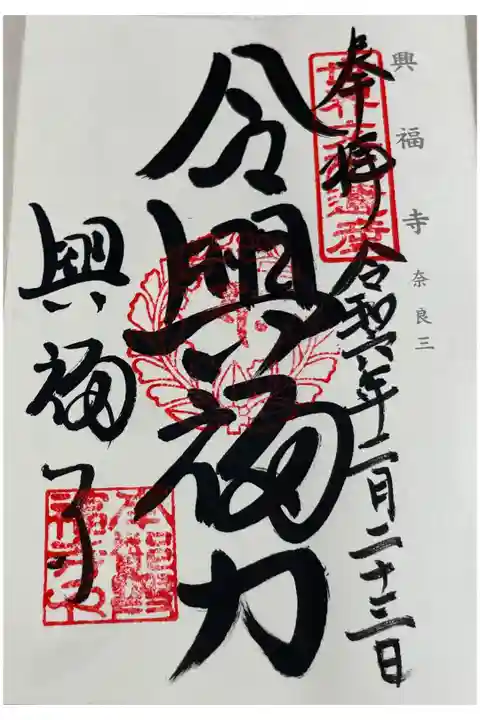 興福寺 奈良三
奉拝 令和六年十二月二十三日
世界文化遺産
令興福力
興福寺